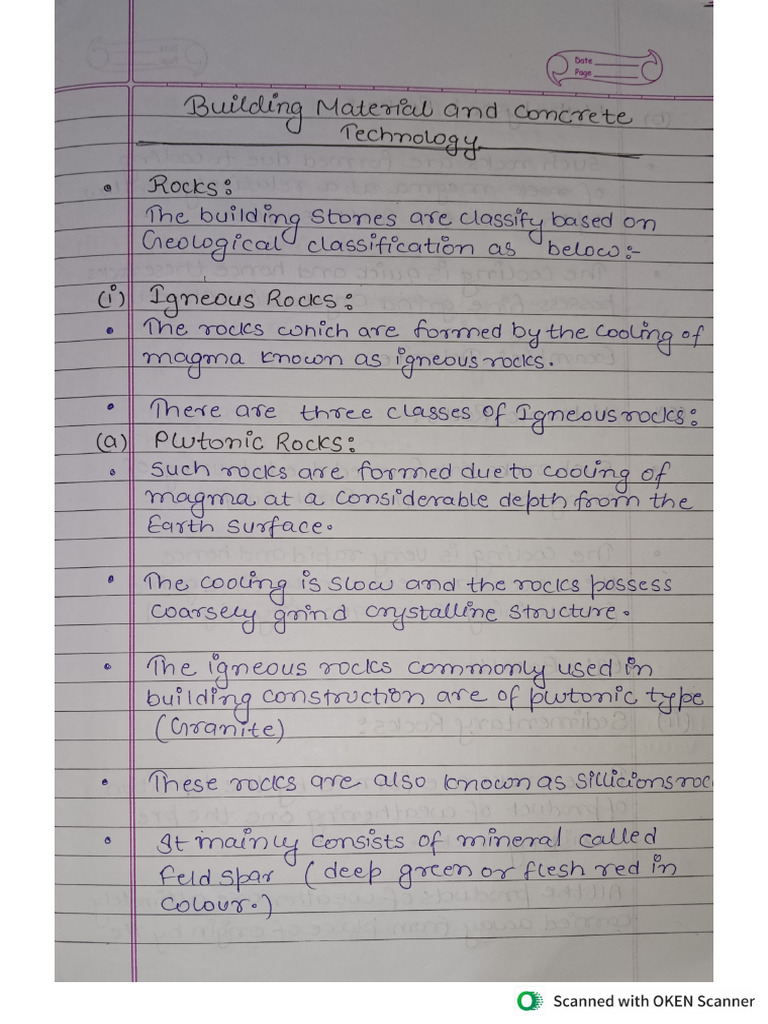 Date
Page
Building Material and Concrete
Technology
• Rocks:
The building Stones are classify based on
Geological classification as below:-
(i) Igneous Rocks:
• The rocks which are formed by the cooling of
magma known as igneous rocks.
• There are three classes of Igneous rocks:
(a) Plutonic Rocks:
• Such rocks are formed due to cooling of
magma at a considerable depth from the
Earth surface.
• The cooling is slow and the rocks possess
coarsely grind crystalline structure.
• The igneous rocks commonly used in
building construction are of plutonic type
(Granite)
• These rocks are also known as sillicions roc
• It mainly consists of mineral called
Feld spar (deep green or flesh red in
colour.)
Scanned with OKEN Scanner